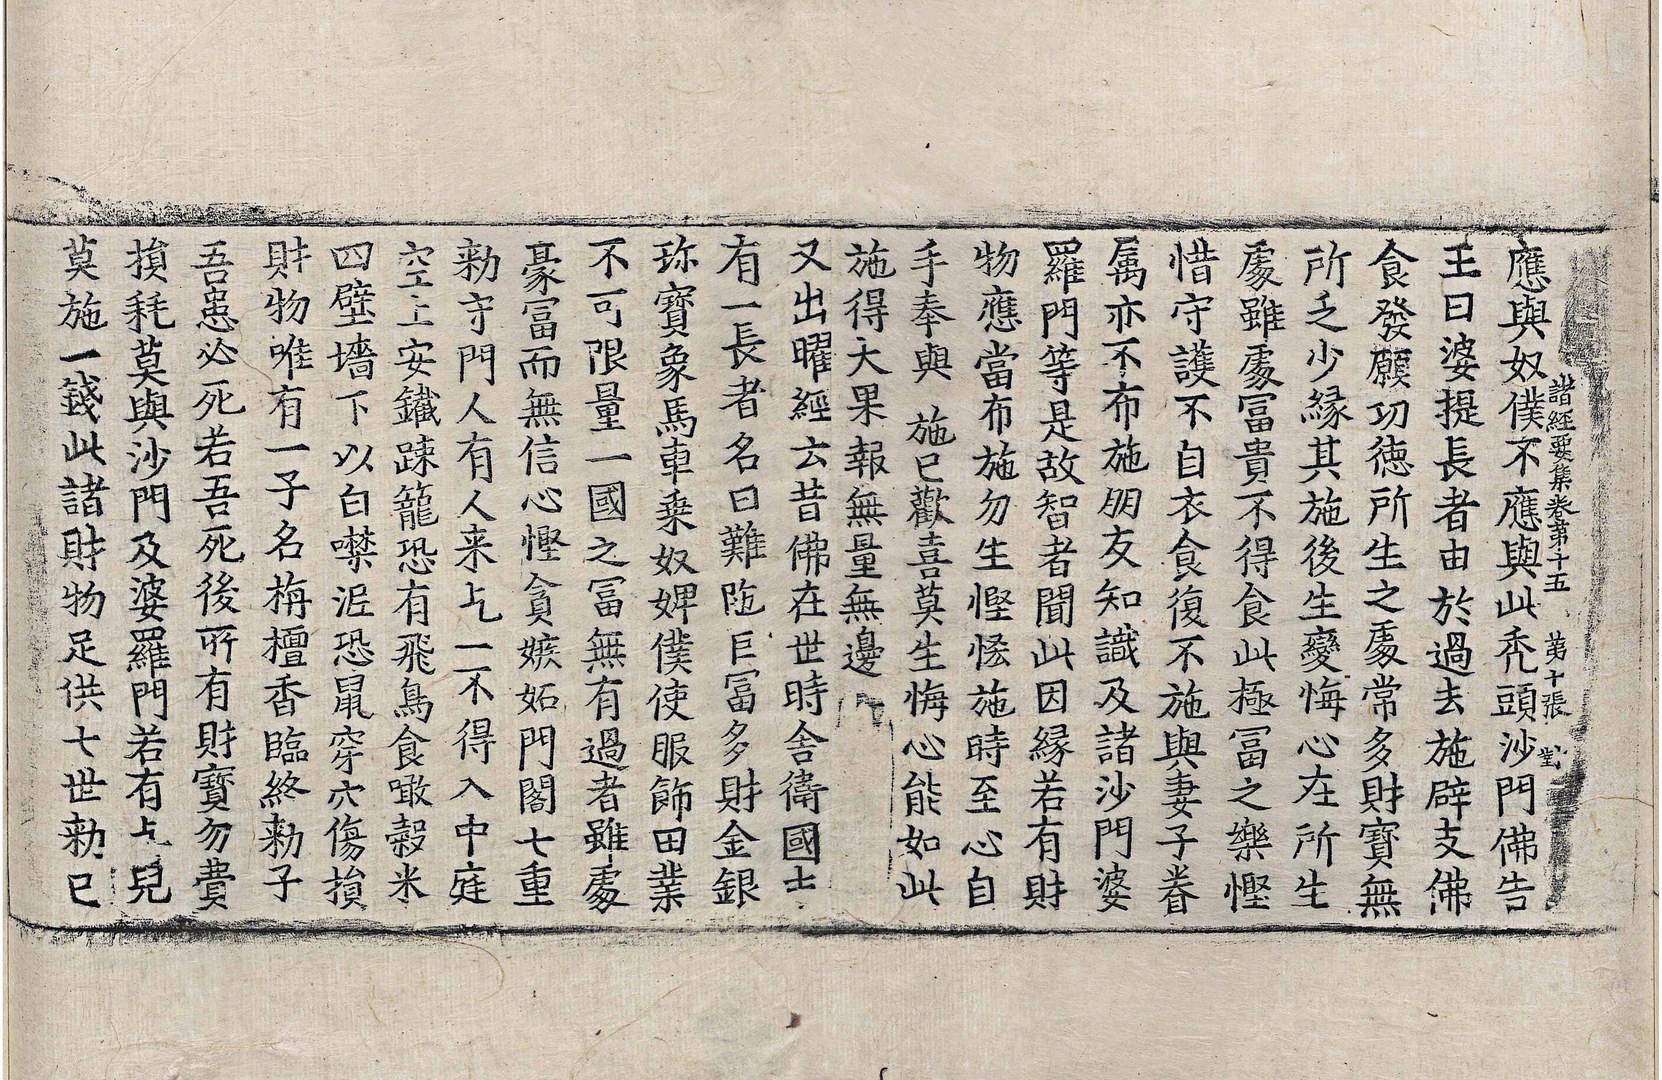 諸經要集卷第十五　第十張　對
應與奴僕不應與此禿頭沙門佛告
王曰婆提長者由於過去施辟支佛
食發願功徳所生之處常多財寶無
所乏少縁其施後生變悔心在所生
處雖處冨貴不得食此極冨之樂慳
惜守護不自衣食復不施與妻子眷
属亦不布施朋友知識及諸沙門婆
羅門等是故智者聞此因縁若有財
物應當布施勿生慳悋施時至心自
手奉與　施已歡喜莫生悔心能如此
施得大果報無量無邊
又出曜經云昔佛在世時舍衛國土
有一長者名曰難陁巨冨多財金銀
珎寶象馬車乗奴婢僕使服飾田業
不可限量一國之冨無有過者雖處
豪冨而無信心慳貪嫉妬門閤七重
勑守門人有人来乞一不得入中庭
空上安鐵踈籠恐有飛鳥食噉穀米
四壁墻下以白㘅泥恐鼠穿穴傷損
財物唯有一子名栴檀香臨終勑子
吾患必死若吾死後所有財寶勿費
損耗莫與沙門及婆羅門若有乞兒
莫施一錢此諸財物足供七世勑已